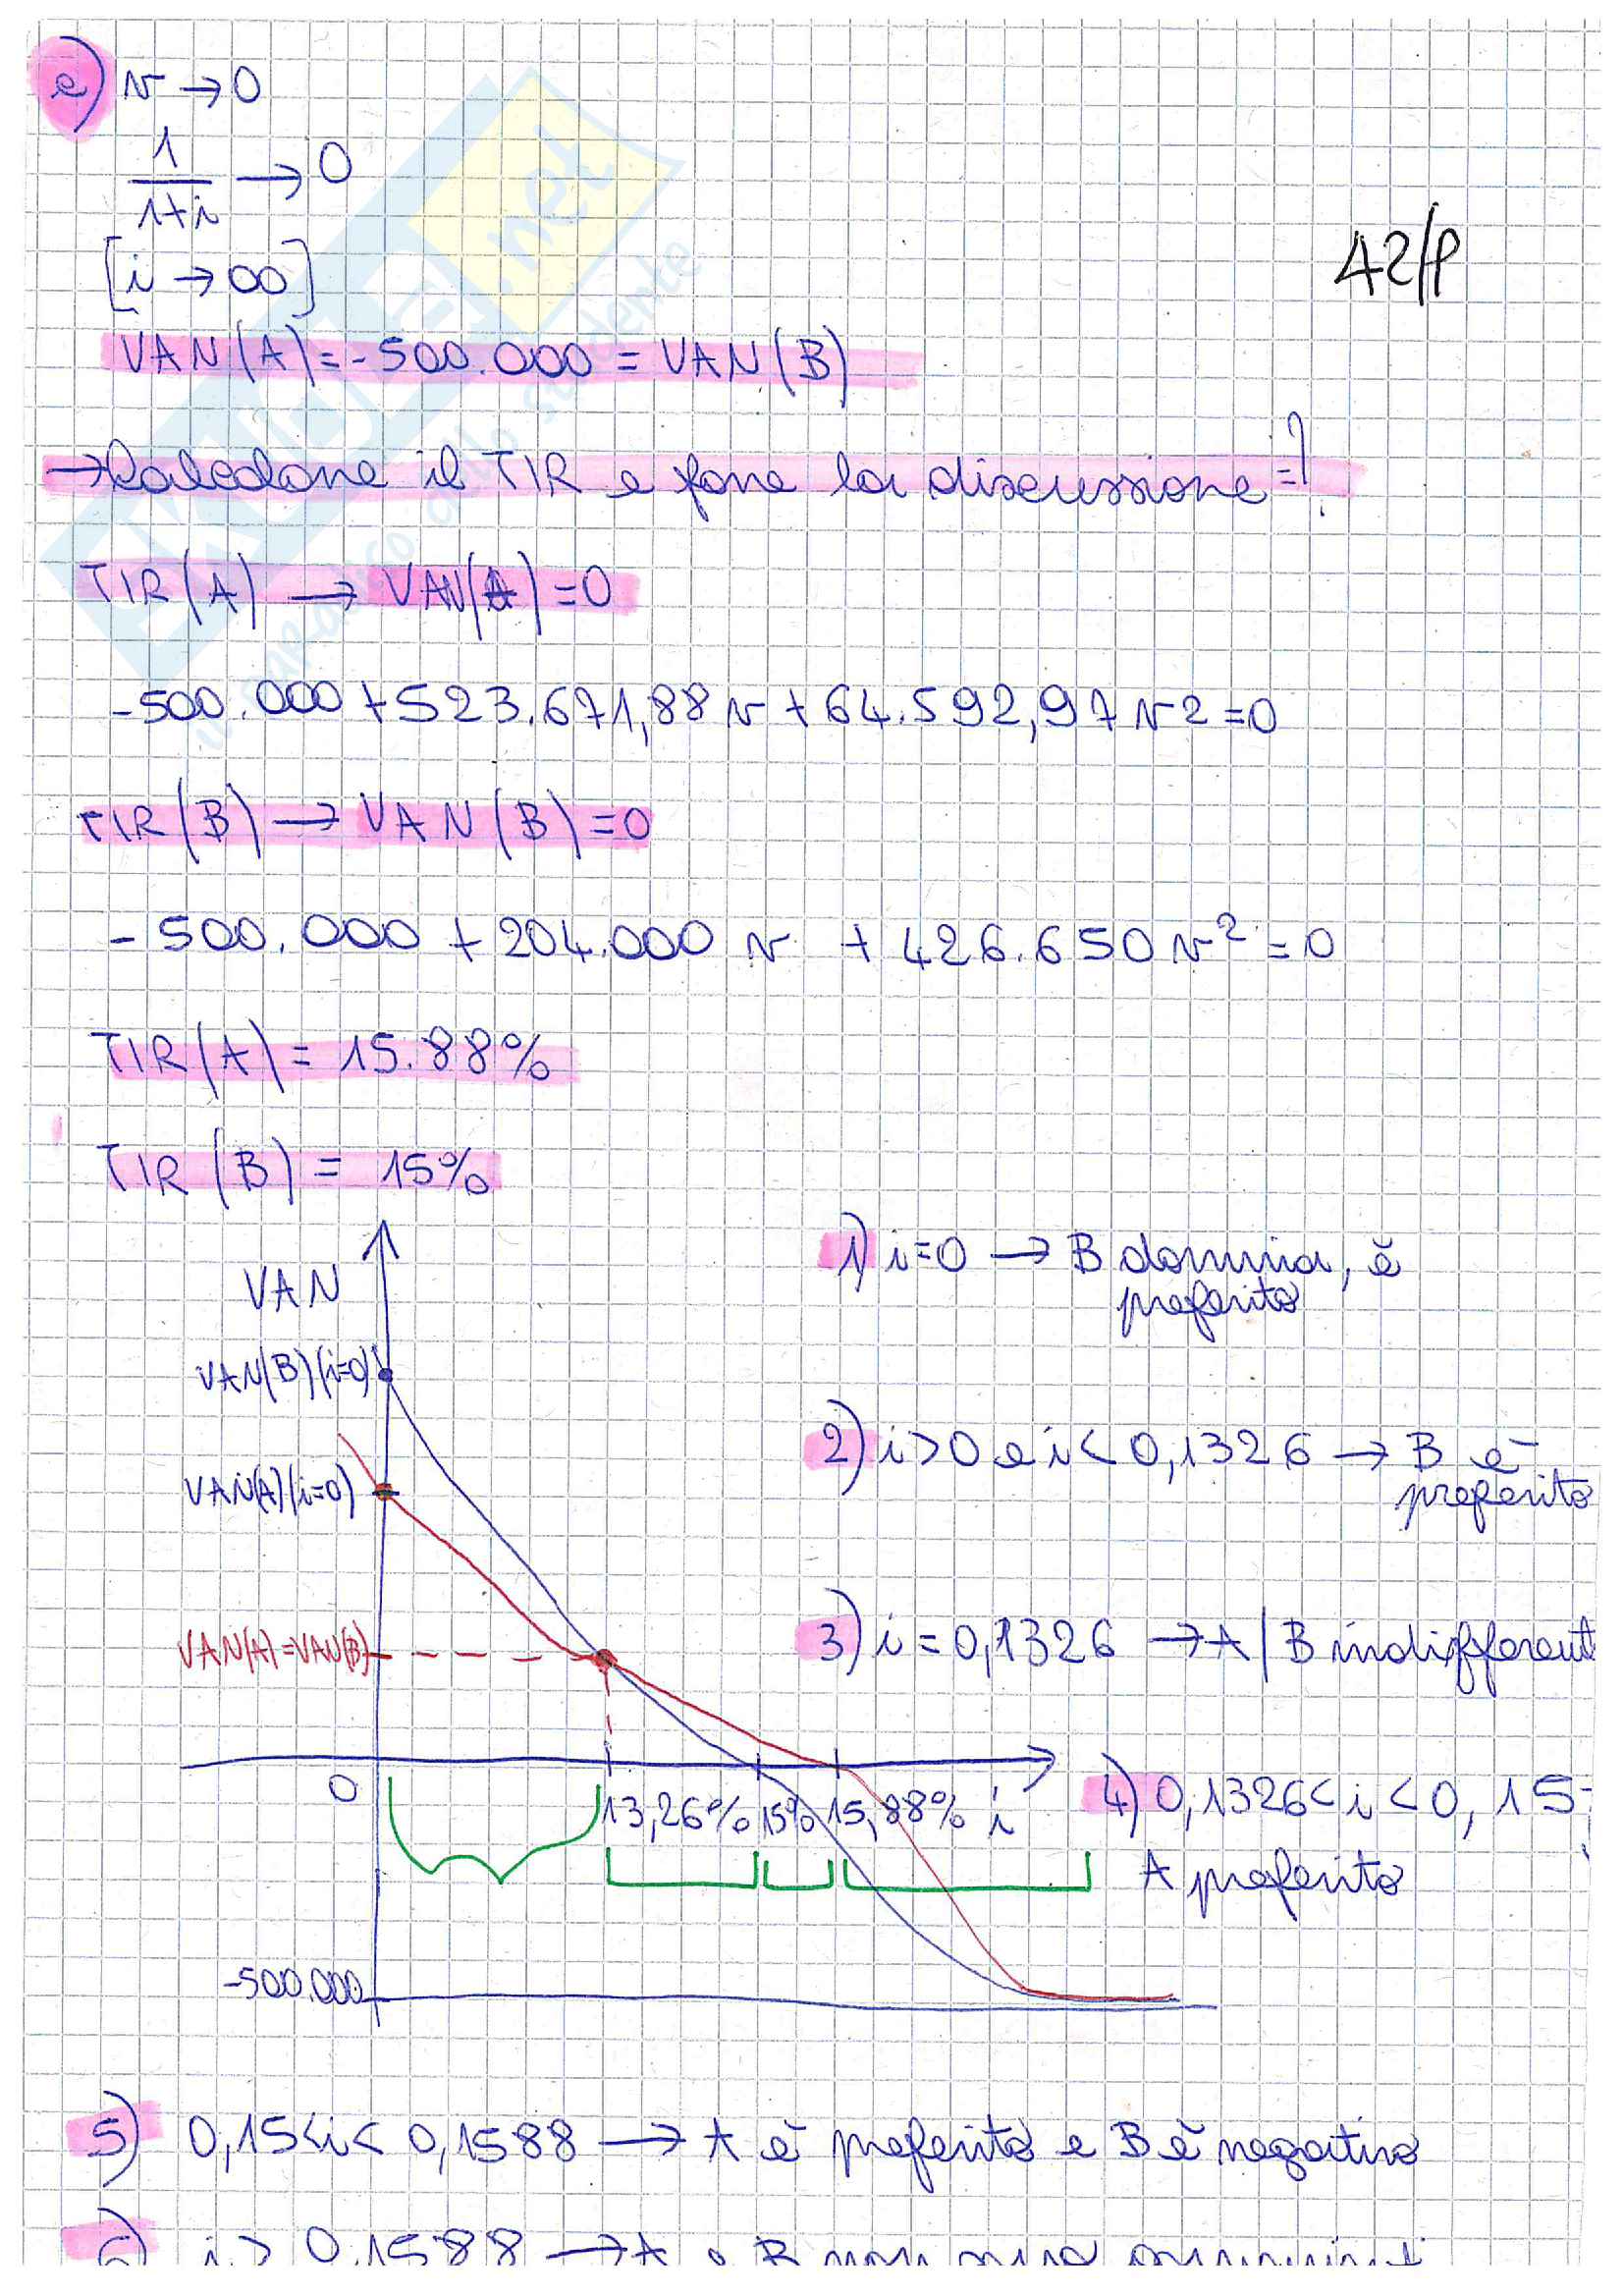 e) v → 0
1/(1+i) → 0
[i → ∞]
42/P
VAN(A) = -500.000 = VAN(B)
→ Calcolare il TIR e fare la discussione =?
TIR(A) → VAN(A) = 0
-500.000 + 523.671,88 v + 64.592,97 v2 = 0
TIR(B) → VAN(B) = 0
- 500.000 + 204.000 v + 426.650 v² = 0
TIR(A) = 15.88%
TIR(B) = 15%
VAN
VAN(B)(i=0)
VAN(A)(i=0)
VAN(A)=VAN(B)
0
13,26% 15% 15,88% i
-500.000
1) i=0 → B domina, è
preferito
2) i>0 e i<0,1326 → B è
preferito
3) i = 0,1326 → A/B indifferent
4) 0,1326<i<0,15
A preferito
5) 0,15<i<0,1588 → A è preferito e B è negativo
6) i > 0,1588 → A e B non sono